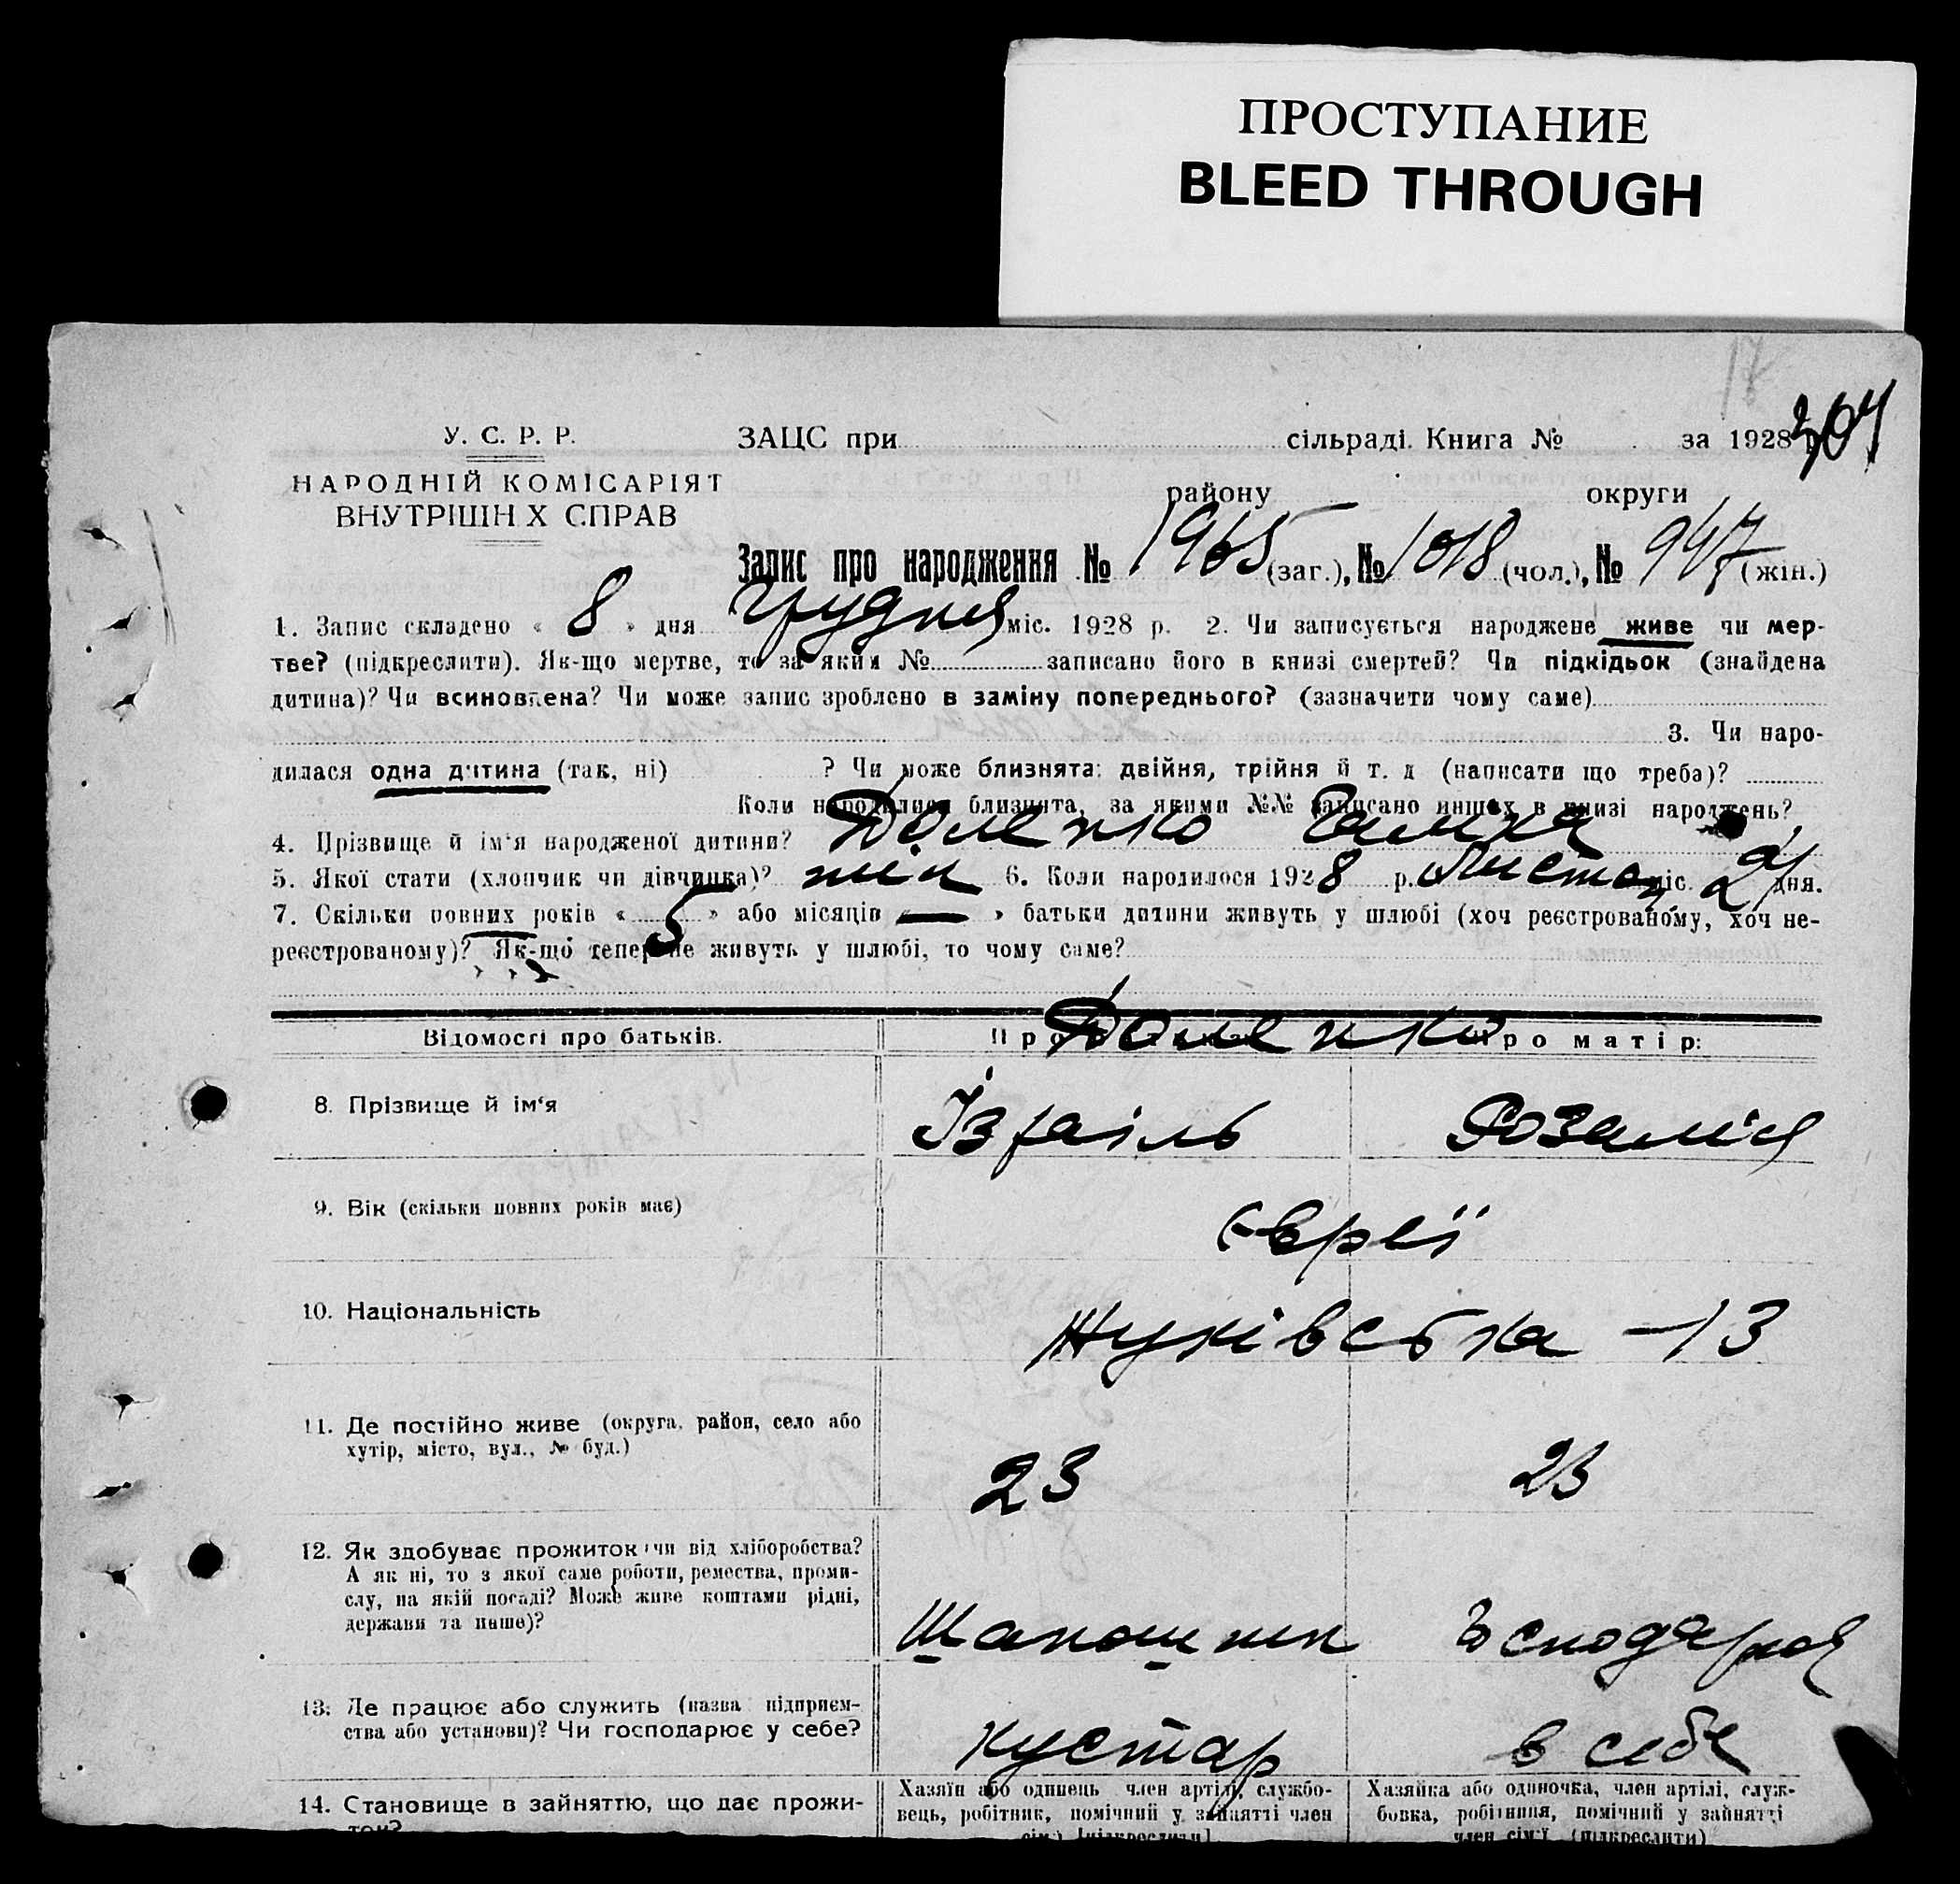 ПРОСТУПАНИЕ
BLEED THROUGH
17
307
У. С. Р. Р.
НАРОДНІЙ КОМІСАРІЯТ
ВНУТРІШН Х СПРАВ
ЗАЦС при сільраді. Книга № за 1928
району округи
Запис про народження № 1965 (заг.), № 1018 (чол.), № 947 (жін.)
1. Запис складено « 8 » дня грудня міс. 1928 р. 2. Чи записується народжене живе чи мер-
тве? (підкреслити). Як-що мертве, то за яким № записано його в книзі смертей? Чи підкідьок (знайдена
дитина)? Чи всиновлена? Чи може запис зроблено в заміну попереднього? (зазначити чому саме)
3. Чи наро-
дилася одна дитина (так, ні) ? Чи може близнята: двійня, трійня й т. д (написати що треба)?
Коли народилися близнята, за якими №№ записано инших в книзі народжень?
4. Прізвище й ім'я народженої дитини? Доленко Галина
5. Якої стати (хлопчик чи дівчинка)? жін 6. Коли народилося 1928 р. Листоп міс. 24 дня.
7. Скільки повних років « 5 » або місяців « — » батьки дитини живуть у шлюбі (хоч реєстрованому, хоч не-
реєстрованому)? Як-що тепер не живуть у шлюбі, то чому саме?
Відомості про батьків. Про Доленко Про матір:
8. Прізвище й ім'я Ізраіль Розалія
9. Вік (скільки повних років має) Євреї
10. Національність Жуківська – 13
11. Де постійно живе (округа, район, село або
хутір, місто, вул., № буд.) 23 23
12. Як здобуває прожиток: чи від хліборобства?
А як ні, то з якої саме роботи, ремества, проми-
слу, на якій посаді? Може живе коштами рідні,
держави та инше)? Шапошник Господарка
13. Де працює або служить (назва підприєм-
ства або установи)? Чи господарює у себе? кустар в себе
14. Становище в зайняттю, що дає прожи-
ток?
Хазяїн або одинець член артілі, службо-
вець, робітник, помічний у зайнятті член
сім'ї [підкреслити]
Хазяйка або одиночка, член артілі, служ-
бовка, робітниця, помічний у зайнятті
член сім'ї (підкреслити)